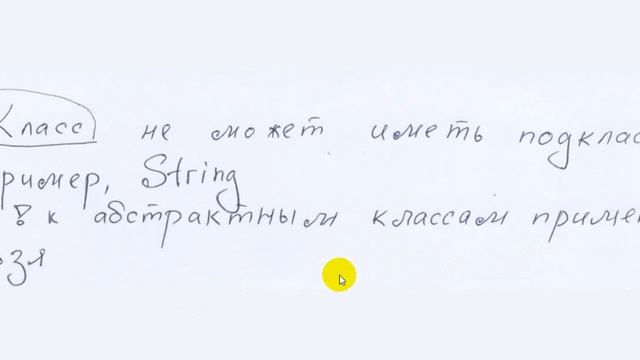 Класс не может иметь подклас
ример, String
! к абстрактным классам приме
зя